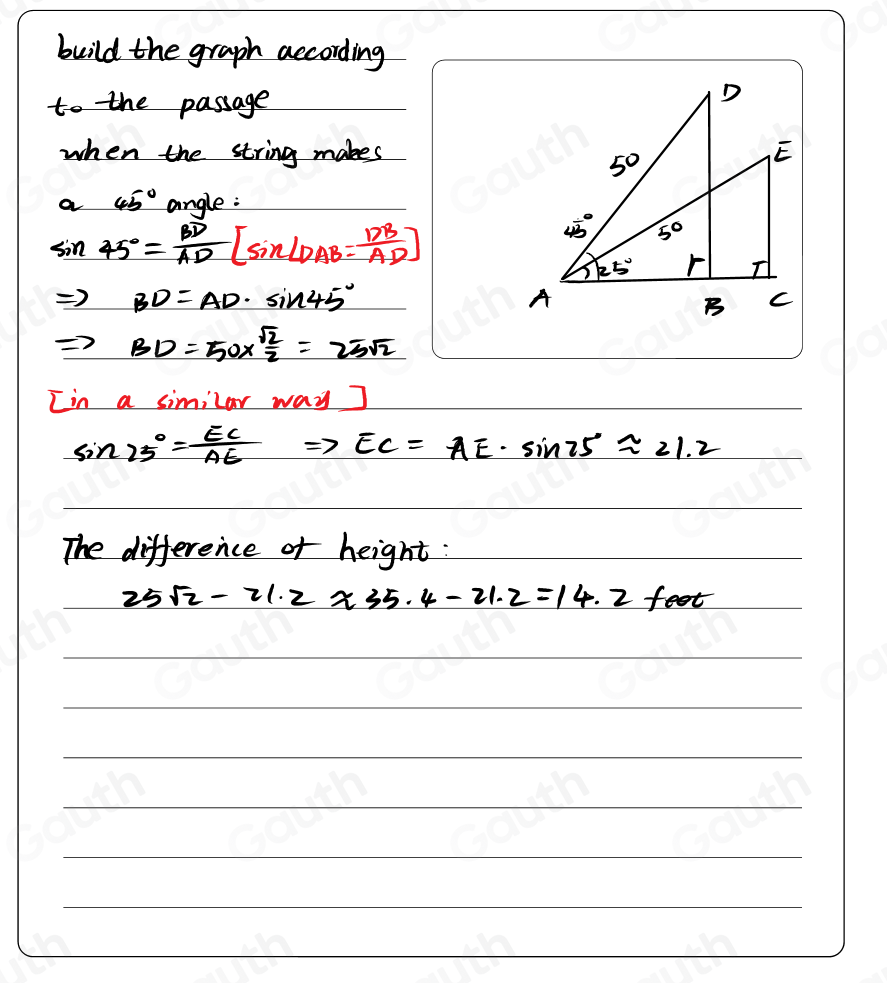 build the graph according
to the passage
when the string makes
a 45° angle:
sin 45° = BD/AD [sin∠DAB = DB/AD]
=> BD = AD · sin45°
=> BD = 50 × √2/2 = 25√2
[in a similar way]
sin 25° = EC/AE => EC = AE · sin25° ≈ 21.2
The difference of height:
25√2 - 21.2 ≈ 35.4 - 21.2 = 14.2 feet
D
E
50
45°
50
25°
A
B
C
Gauth